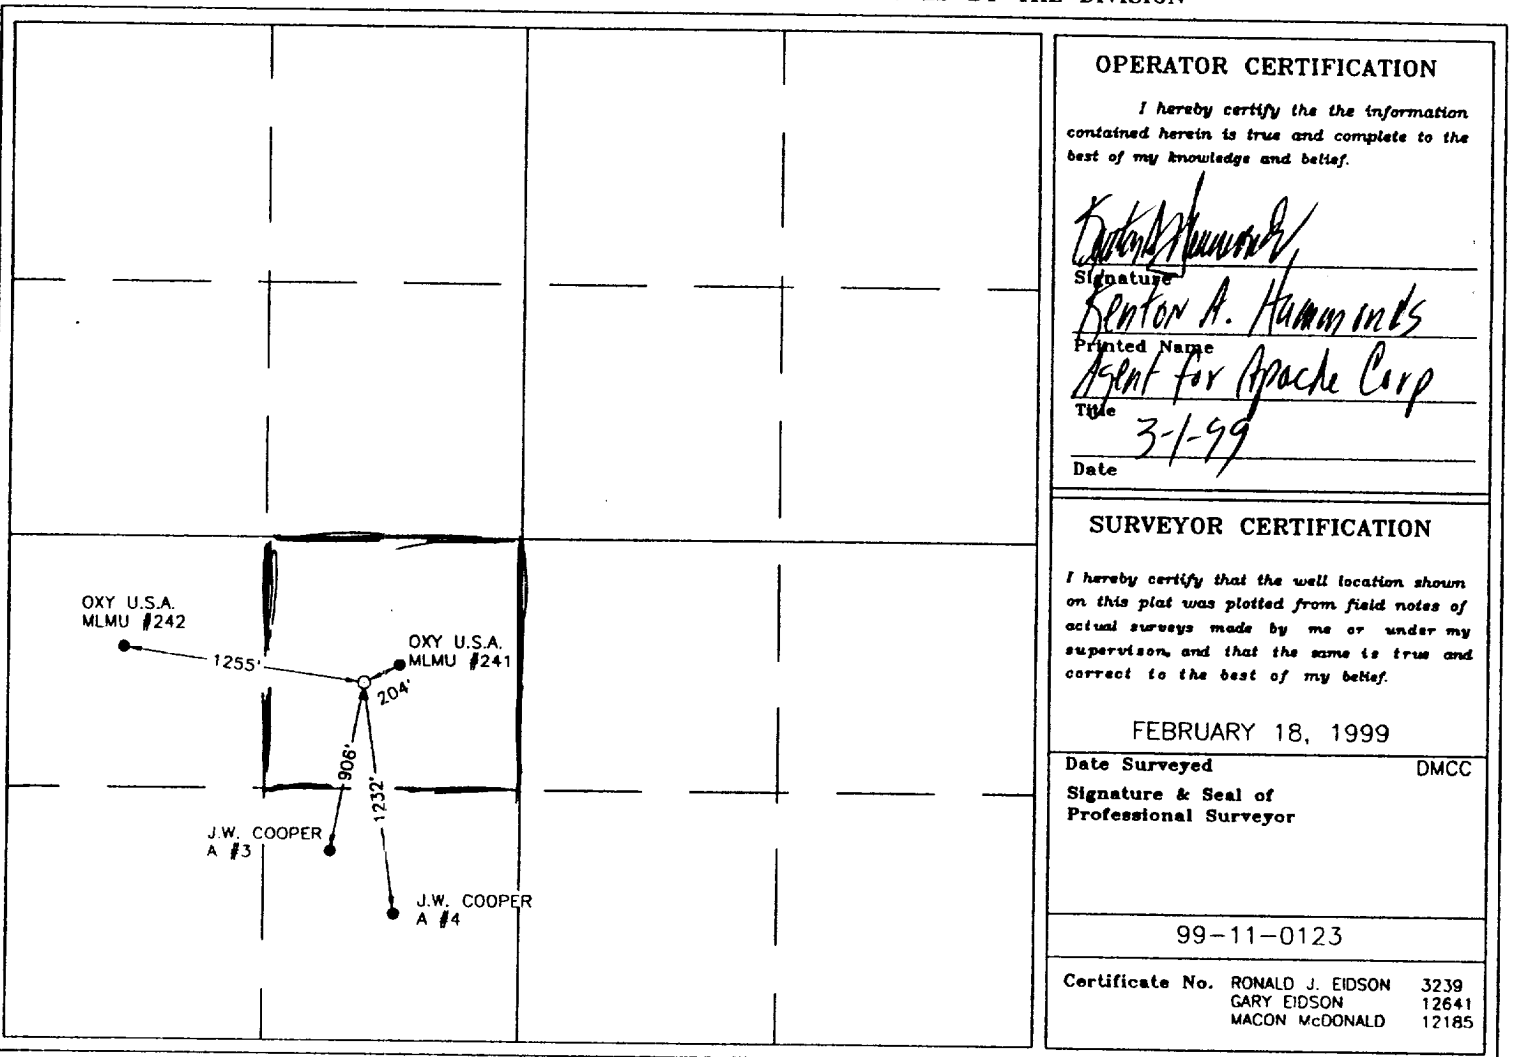 BY THE DIVISION
OXY U.S.A.
MLMU #242
1255'
OXY U.S.A.
MLMU #241
204'
906'
1232'
J.W. COOPER
A #3
J.W. COOPER
A #4
OPERATOR CERTIFICATION
I hereby certify the the information
contained herein is true and complete to the
best of my knowledge and belief.
Signature
Kenton A. Hammonds
Printed Name
Agent for Apache Corp
Title
3-1-99
Date
SURVEYOR CERTIFICATION
I hereby certify that the well location shown
on this plat was plotted from field notes of
actual surveys made by me or under my
supervison, and that the same is true and
correct to the best of my belief.
FEBRUARY 18, 1999
Date Surveyed DMCC
Signature & Seal of
Professional Surveyor
99-11-0123
Certificate No. RONALD J. EIDSON 3239
GARY EIDSON 12641
MACON McDONALD 12185